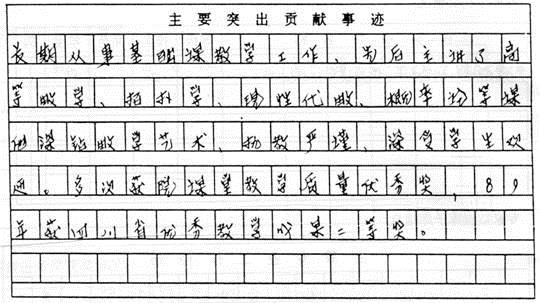 主要突出贡献事迹
长期从事基础课教学工作、先后主讲了高
等数学、拓扑学、线性代数、概率论等课
他深钻教学艺术、执教严谨、深受学生欢
迎。多次获院课堂教学质量优秀奖，89
年获四川省优秀教学成果二等奖。